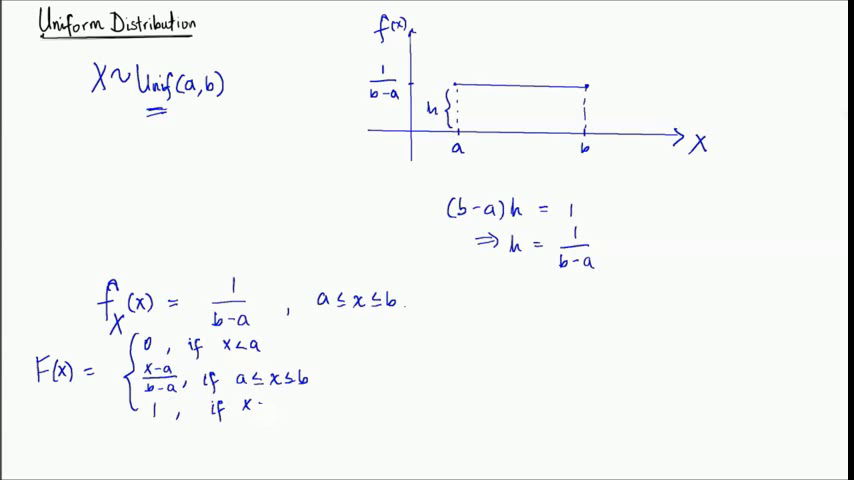 Uniform Distribution
X ~ Unif(a,b)
f(x)
1/(b-a)
h {
a b X
(b-a)h = 1
⇒ h = 1/(b-a)
f_X(x) = 1/(b-a) , a ≤ x ≤ b.
F(x) = { 0 , if x < a
(x-a)/(b-a) , if a ≤ x ≤ b
1 , if x